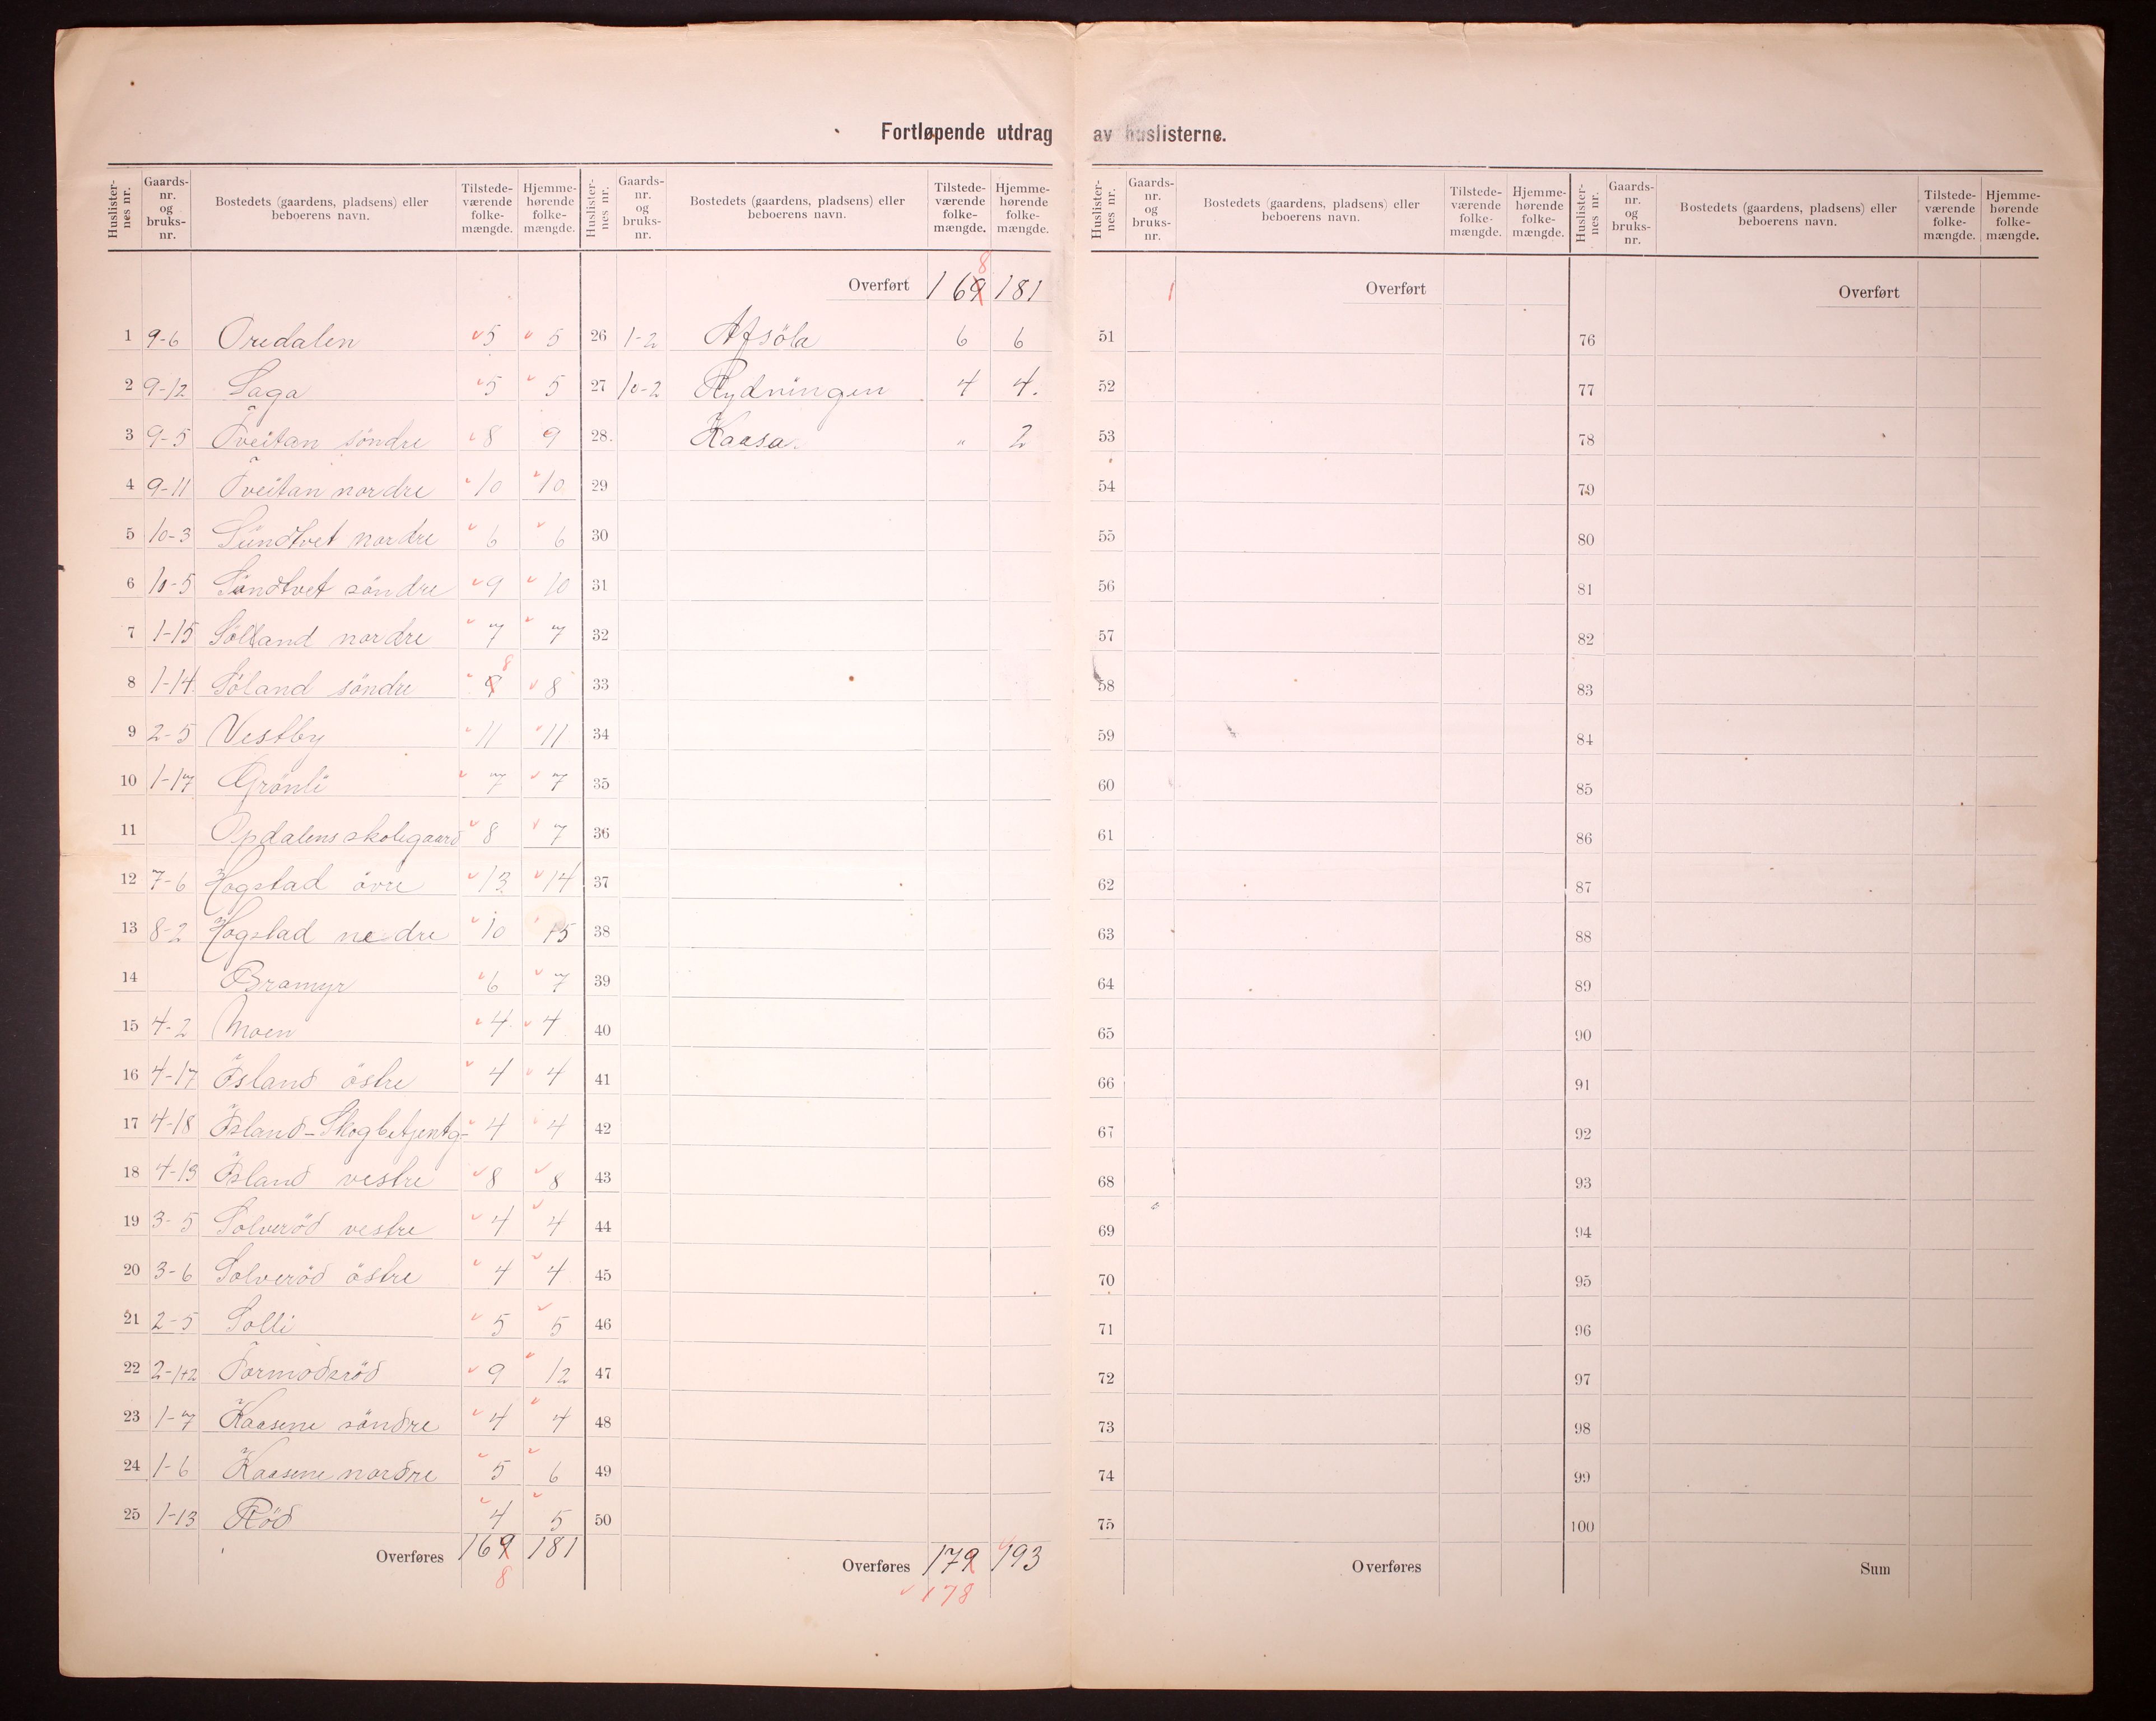 Fortløpende utdrag av huslisterne.
Huslister- nes nr. Gaards- nr. og bruks- nr. Bostedets (gaardens, pladsens) eller beboerens navn. Tilstede- værende folke- mængde. Hjemme- hørende folke- mængde.
Huslister- nes nr. Gaards- nr. og bruks- nr. Bostedets (gaardens, pladsens) eller beboerens navn. Tilstede- værende folke- mængde. Hjemme- hørende folke- mængde.
Huslister- nes nr. Gaards- nr. og bruks- nr. Bostedets (gaardens, pladsens) eller beboerens navn. Tilstede- værende folke- mængde. Hjemme- hørende folke- mængde.
Huslister- nes nr. Gaards- nr. og bruks- nr. Bostedets (gaardens, pladsens) eller beboerens navn. Tilstede- værende folke- mængde. Hjemme- hørende folke- mængde.
1 9-6 Oredalen 5 5
2 9-12 Saga 5 5
3 9-5 Tveitan söndre 8 9
4 9-11 Tveitan nordre 10 10
5 10-3 Sündtvet nordre 6 6
6 10-5 Sündtvet söndre 9 10
7 1-15 Sölland nordre 7 7
8 1-14 Söland söndre 9 8 8
9 2-5 Vestby 11 11
10 1-17 Grönli 7 7
11 Opdalens skolegaard 8 7
12 7-6 Hogstad övre 13 14
13 8-2 Hogstad nedre 10 15
14 Bramyr 6 7
15 4-2 Moen 4 4
16 4-17 Ösland östre 4 4
17 4-18 Ösland-Skogbetjentg- 4 4
18 4-19 Ösland vestre 8 8
19 3-5 Solveröd vestre 4 4
20 3-6 Solveröd östre 4 4
21 2-5 Solli 5 5
22 2-1+2 Tormodsröd 9 12
23 1-7 Kaasene söndre 4 4
24 1-6 Kaasene nordre 5 6
25 1-13 Röd 4 5
Overføres 169 181
8
Overført 169 8 181
26 1-2 Afsöla 6 6
27 10-2 Rydningen 4 4.
28. Kaasa. " 2
29
30
31
32
33
34
35
36
37
38
39
40
41
42
43
44
45
46
47
48
49
50
Overføres 179 193
178
1 Overført
51
52
53
54
55
56
57
58
59
60
61
62
63
64
65
66
67
68
69
70
71
72
73
74
75
Overføres
Overført
76
77
78
79
80
81
82
83
84
85
86
87
88
89
90
91
92
93
94
95
96
97
98
99
100
Sum